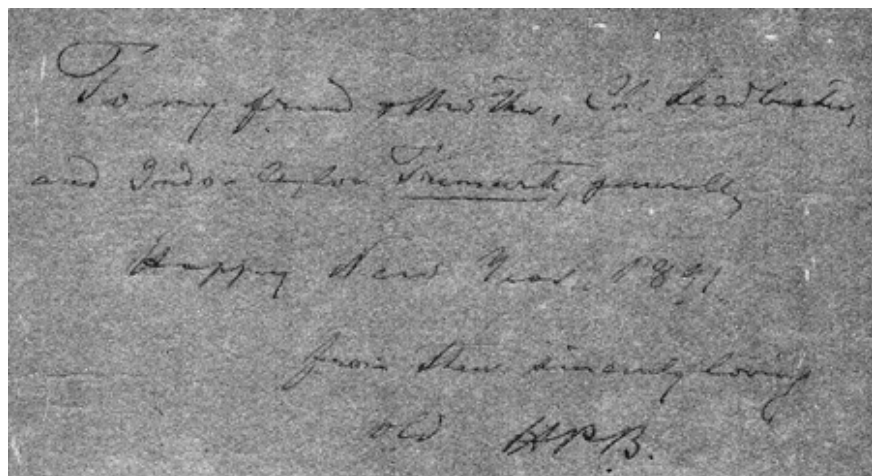 To my friend & brother, Ch. Leadbeater,
and Indo-Ceylon
Happy New Year. 1891
from their sincerely loving
old H.P.B.